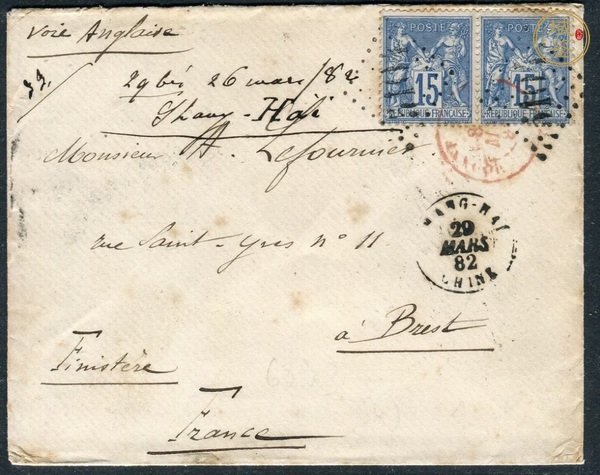 voie Anglaise
29 bis 26 mars/82
Shang-Haï
Monsieur A. Lefournier
rue Saint-Yves n° 11
à Brest
Finistère
France
POSTE POSTE
15 15
REPUBLIQUE FRANÇAISE REPUBLIQUE FRANÇAISE
HANG-HAI
29
MARS
82
CHINE